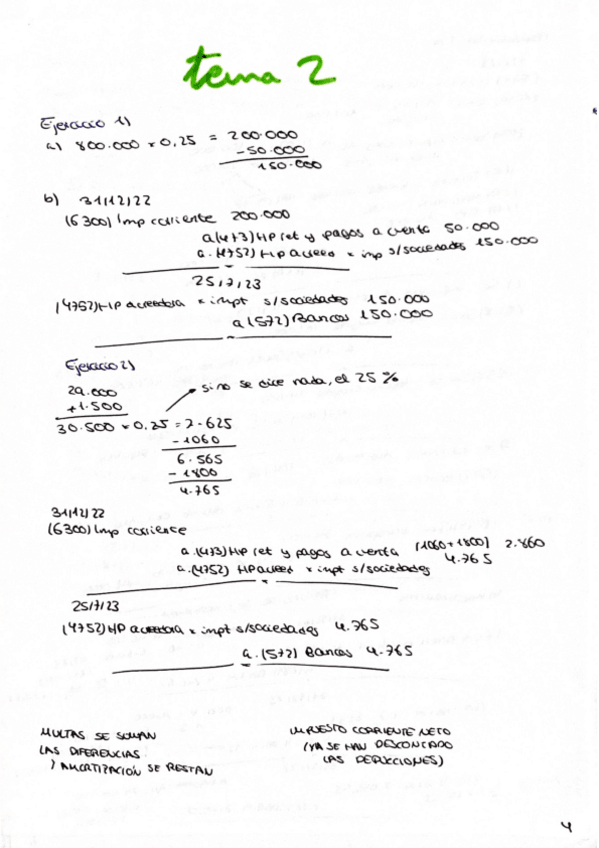 tema 2
Ejercicio 1)
a) 800.000 x 0,25 = 200.000
- 50.000
150.000
b) 31/12/22
(6300) Imp corriente 200.000
a (473) HP ret y pagos a cuenta 50.000
a. (4752) HP acreed x imp s/sociedades 150.000
25/7/23
(4752) HP acreedora x impt s/sociedades 150.000
a (572) Bancos 150.000
Ejercicio 2)
29.000
+1.500
si no se dice nada, el 25 %
30.500 x 0,25 = 7.625
- 1060
6.565
- 1800
4.765
31/12/22
(6300) Imp corriente
a. (473) HP ret y pagos a cuenta (1060+1800) 2.860
a. (4752) HP acreed x impt s/sociedades 4.765
25/7/23
(4752) HP acreedora x impt s/sociedades 4.765
a. (572) Bancos 4.765
MULTAS SE SUMAN
LAS DIFERENCIAS
) AMORTIZACIÓN SE RESTAN
IMPUESTO CORRIENTE NETO
(YA SE HAN DESCONTADO
LAS DEDUCCIONES)
4